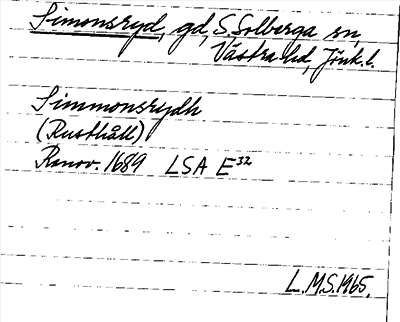 Simonsryd, gd, S. Solberga sn,
Västra hd, Jönk. l.
Simmonsrydh
(Rusthåll)
Ranov. 1689 LSA E32
L.M.S. 1965.